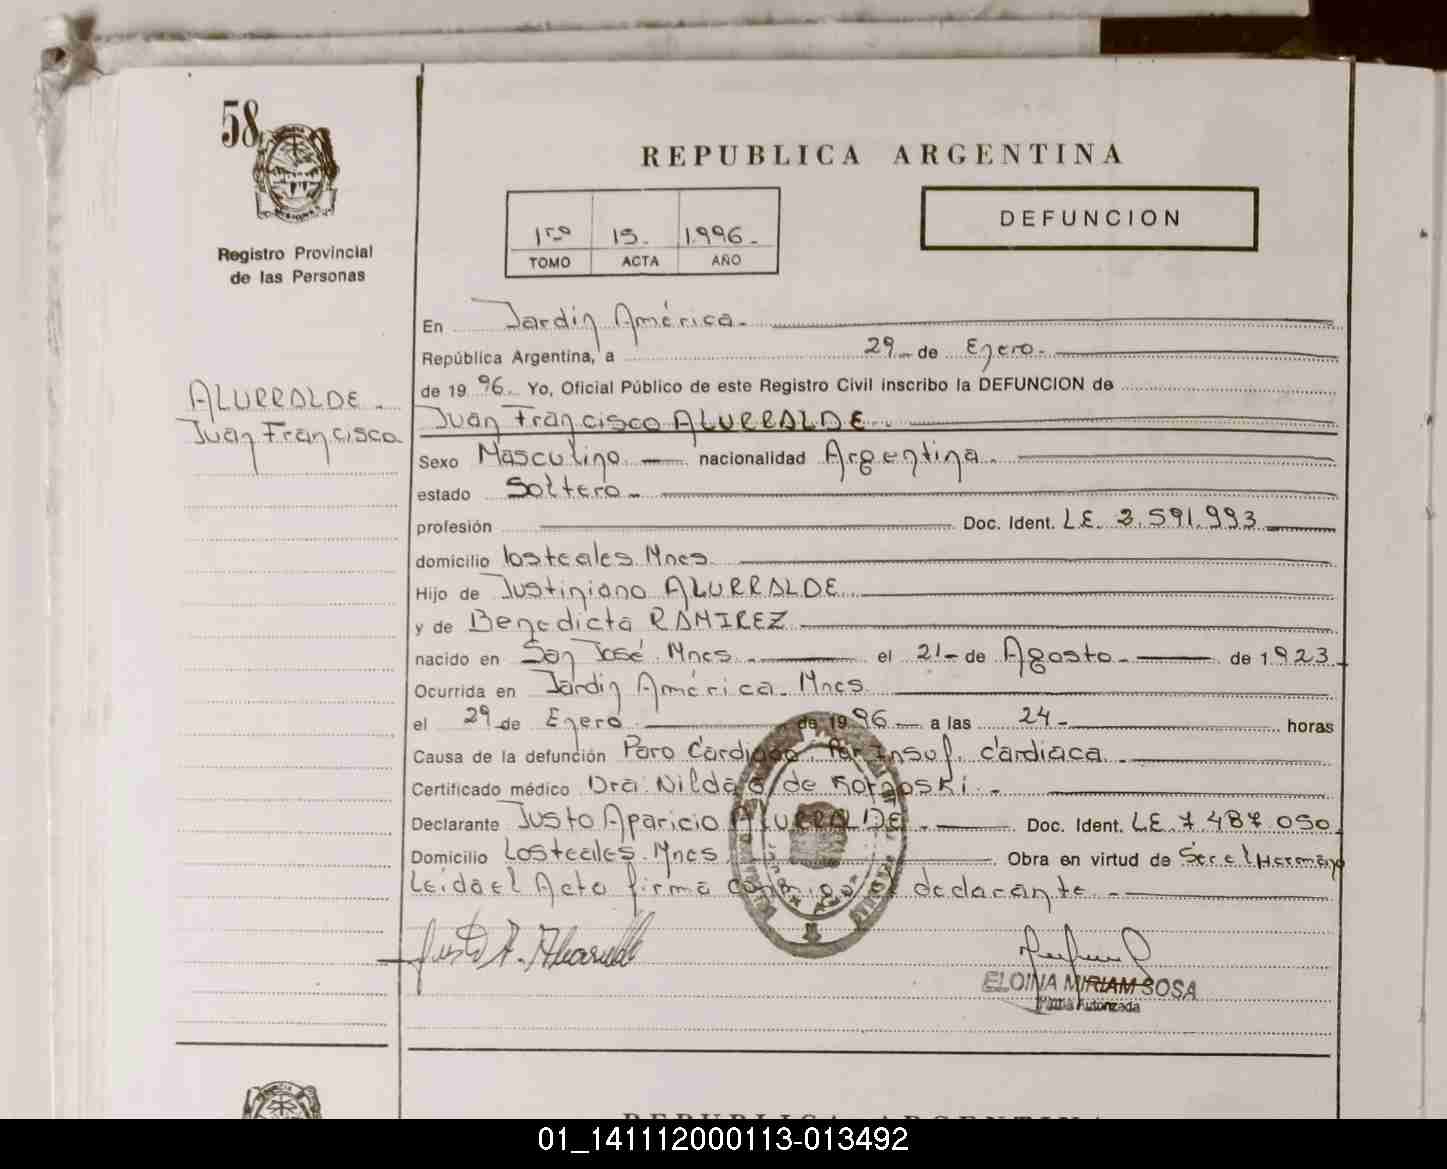 58
REPUBLICA ARGENTINA
Registro Provincial
de las Personas
1ro 15. 1.996.-
TOMO ACTA AÑO
DEFUNCION
ALURRALDE.
Juan Francisco
En Jardín América.-
República Argentina, a 29 de Enero.-
de 19 96. Yo, Oficial Público de este Registro Civil inscribo la DEFUNCION de
Juan Francisco ALURRALDE.
Sexo Masculino — nacionalidad Argentina.
estado Soltero.-
profesión Doc. Ident. LE. 2.591.993
domicilio losteales Mnes.
Hijo de Justiniano ALURRALDE
y de Benedicta RAMIREZ
nacido en San José Mnes. el 21- de Agosto.- de 1.923
Ocurrida en Jardín América. Mnes
el 29 de Enero de 19 96 a las 24 - horas
Causa de la defunción Paro Cardiaco. Por Insuf. Cardiaca.
Certificado médico Dra. Nilda de
Declarante Justo Aparicio ALURRALDE.- Doc. Ident. LE. 7 487 050
Domicilio Losteales. Mnes Obra en virtud de Ser el Hermano
Leida el Acta firma conmigo el declarante.-
ELOINA MIRIAM SOSA
Firma Autorizada
REPUBLICA ARGENTINA
01_141112000113-013492